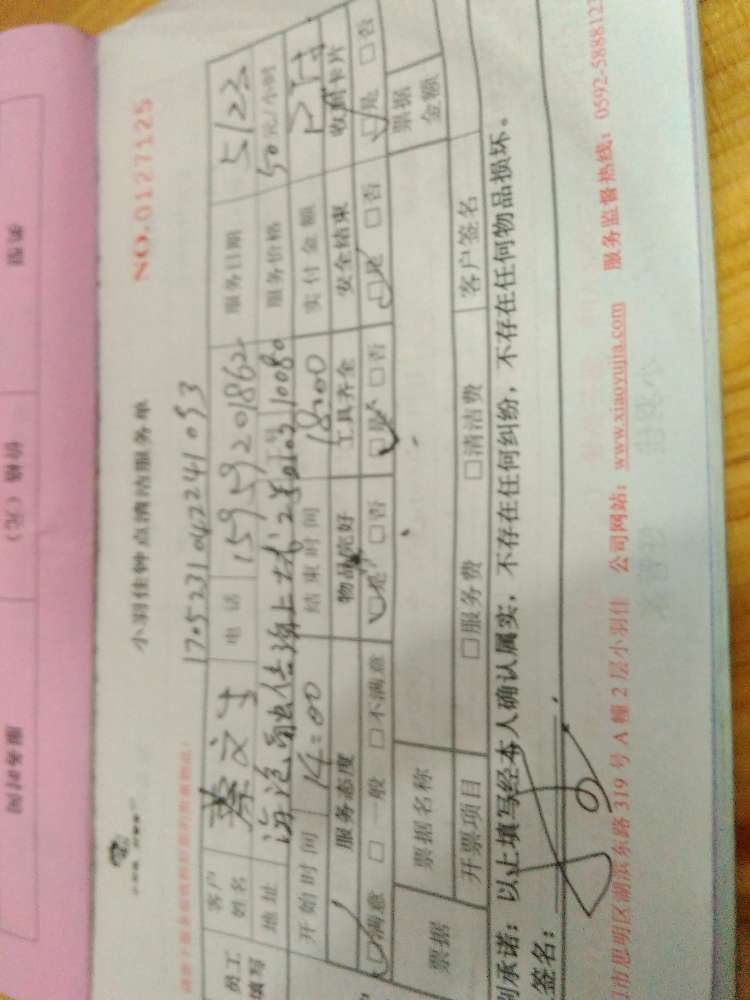 小羽佳钟点清洁服务单
NO.0127125
1705231042241093
员工填写
客户姓名 蔡文 电话 15959201862 服务日期 5/23
地址 服务价格 50元/小时
开始时间 14:00 结束时间 18:00 实付金额
服务态度 物品完好 工具齐全 安全结束 收到卡片
□满意 □一般 □不满意 □是 □否 □是 □否 □是 □否 □是 □否
票据 票据名称 票据金额
开票项目 □服务费 □清洁费 客户签名
承诺:以上填写经本人确认属实,不存在任何纠纷,不存在任何物品损坏。
签名:
市思明区湖滨东路319号A幢2层小羽佳 公司网站:www.xiaoyujia.com 服务监督热线:0592-5888123
类型
价格(元)
服务时间